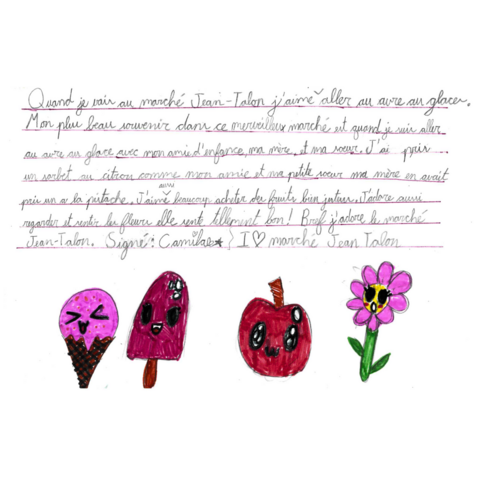 Quand je vais au marché Jean-Talon j'aime aller au avre au glaces.
Mon plus beau souvenir dans ce merveilleux marché est quand je suis aller
au avre au glace avec mon amie d'enfance, ma mère, et ma soeur. J'ai pris
un sorbet au citron comme mon amie et ma petite soeur ma mère en avait
pris un a la pistache. J'aime aussi beaucoup acheter des fruits bien juteux. J'adore aussi
regarder et sentir les fleurs elle sente tellment bon! Bref j'adore le marché
Jean-Talon. Signé: Camila★ } I ♡ marché Jean Talon